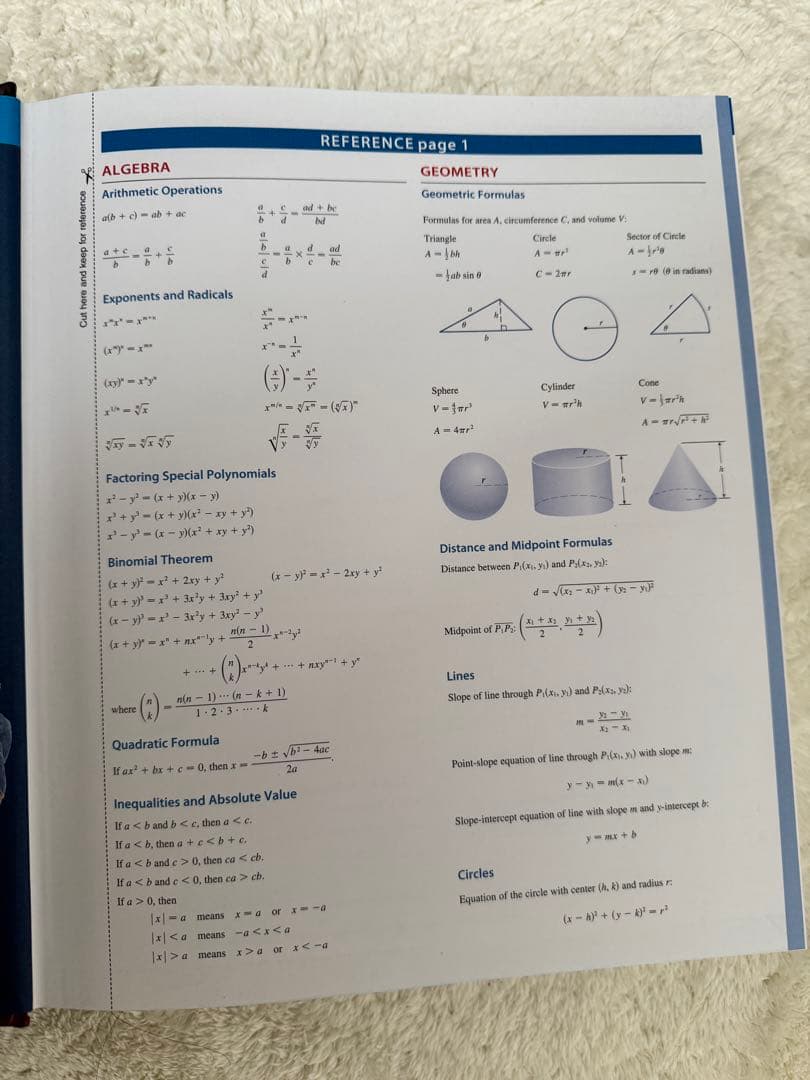 REFERENCE page 1
Cut here and keep for reference
ALGEBRA
Arithmetic Operations
a(b + c) = ab + ac
a/b + c/d = (ad + bc)/bd
(a + c)/b = a/b + c/b
(a/b)/(c/d) = a/b × d/c = ad/bc
Exponents and Radicals
xᵐxⁿ = xᵐ⁺ⁿ
xᵐ/xⁿ = xᵐ⁻ⁿ
(xᵐ)ⁿ = xᵐⁿ
x⁻ⁿ = 1/xⁿ
(xy)ⁿ = xⁿyⁿ
(x/y)ⁿ = xⁿ/yⁿ
x¹/ⁿ = ⁿ√x
xᵐ/ⁿ = ⁿ√xᵐ = (ⁿ√x)ᵐ
ⁿ√xy = ⁿ√x ⁿ√y
ⁿ√(x/y) = ⁿ√x/ⁿ√y
Factoring Special Polynomials
x² − y² = (x + y)(x − y)
x³ + y³ = (x + y)(x² − xy + y²)
x³ − y³ = (x − y)(x² + xy + y²)
Binomial Theorem
(x + y)² = x² + 2xy + y² (x − y)² = x² − 2xy + y²
(x + y)³ = x³ + 3x²y + 3xy² + y³
(x − y)³ = x³ − 3x²y + 3xy² − y³
(x + y)ⁿ = xⁿ + nxⁿ⁻¹y + n(n − 1)/2 xⁿ⁻²y²
+ ⋯ + (n k) xⁿ⁻ᵏyᵏ + ⋯ + nxyⁿ⁻¹ + yⁿ
where (n k) = n(n − 1) ⋯ (n − k + 1)/1 · 2 · 3 · ⋯ · k
Quadratic Formula
If ax² + bx + c = 0, then x = (−b ± √(b² − 4ac))/2a.
Inequalities and Absolute Value
If a < b and b < c, then a < c.
If a < b, then a + c < b + c.
If a < b and c > 0, then ca < cb.
If a < b and c < 0, then ca > cb.
If a > 0, then
|x| = a means x = a or x = −a
|x| < a means −a < x < a
|x| > a means x > a or x < −a
GEOMETRY
Geometric Formulas
Formulas for area A, circumference C, and volume V:
Triangle Circle Sector of Circle
A = ½bh A = πr² A = ½r²θ
= ½ab sin θ C = 2πr s = rθ (θ in radians)
a h θ b
r
r s θ r
Sphere Cylinder Cone
V = 4/3πr³ V = πr²h V = ⅓πr²h
A = 4πr² A = πr√(r² + h²)
r
r h
h r
Distance and Midpoint Formulas
Distance between P₁(x₁, y₁) and P₂(x₂, y₂):
d = √((x₂ − x₁)² + (y₂ − y₁)²)
Midpoint of P₁P₂: ((x₁ + x₂)/2, (y₁ + y₂)/2)
Lines
Slope of line through P₁(x₁, y₁) and P₂(x₂, y₂):
m = (y₂ − y₁)/(x₂ − x₁)
Point-slope equation of line through P₁(x₁, y₁) with slope m:
y − y₁ = m(x − x₁)
Slope-intercept equation of line with slope m and y-intercept b:
y = mx + b
Circles
Equation of the circle with center (h, k) and radius r:
(x − h)² + (y − k)² = r²